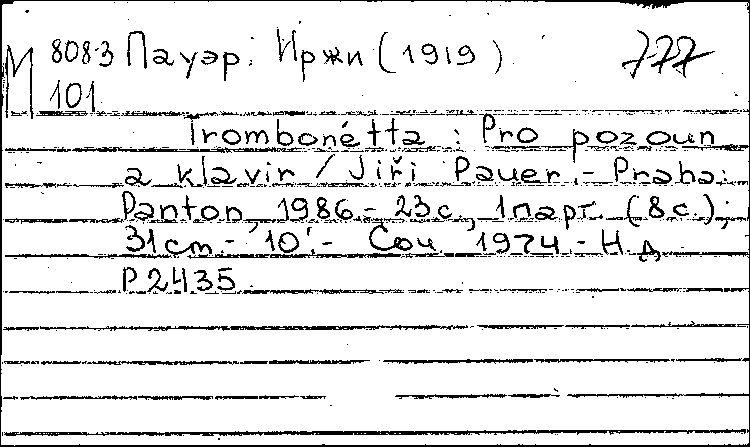 М 808-3 Пауэр, Иржи (1919) 777
101
Trombonétta : Pro pozoun
a klavir / Jiři Pauer. - Praha:
Panton, 1986. - 23с., 1парт. (8с.);
31cm. - 10'. - Соч. 1974. - Н.д.
P2435